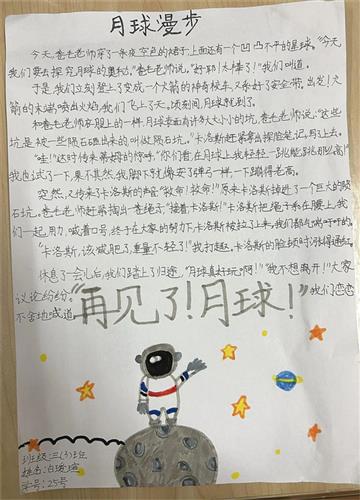 月球漫步
今天,卷毛老师穿了一条夜空色的裙子,上面还有一个凹凸不平的星球。"今天,
我们要去探究月球的奥秘。"卷毛老师说。"好耶!太棒了!"我们叫道。
于是,我们立刻登上了变成一个火箭的神奇校车,又系好了安全带。出发!火
箭的末端喷出火焰,我们飞上了天,顷刻间,月球就到了。
和卷毛老师衣服上的一样,月球表面有许多大大小小的坑。卷毛老师说:"这些
坑,是被一些陨石砸出来的,叫做陨石坑。"卡洛斯赶紧拿出探险笔记,写上去。
"哇!"这时传来蒂姆的惊呼,"你们看,在月球上我轻轻一跳,能跳那么高!"
我也试了一下,果不其然,我脚下就像安了弹簧一样,一下蹦得老高。
突然,又传来了卡洛斯的声音:"救命!救命!"原来卡洛斯掉进了一个巨大的陨石
坑。卷毛老师赶紧掏出一卷绳子,"接着,卡洛斯!"卡洛斯把绳子系在腰上,我
们一起,用力,喊着口号,终于在大家的努力下,卡洛斯被拉了上来,我们都气喘吁吁的。
"卡洛斯,该减肥了,重量不轻了!"我打趣。卡洛斯的脸顿时涨得通红。
休息了一会儿后,我们踏上了归途。"月球真好玩啊!""我不想离开!"大家
议论纷纷。"再见了!月球!"我们恋恋
不舍地喊道。
班级:三(3)班
姓名:白
学号:25号